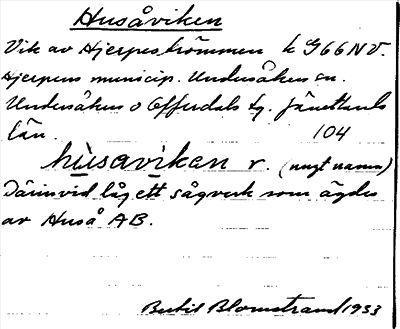 Husåviken
Vik av Hjerpeströmmen k G66NV.
Hjerpens municip. Undersåkers sn.
Undersåkers o Offerdals tg. Jämtlands
län. 104
hùsavìken r. (nygt namn)
Därinvid låg ett sågverk som ägdes
av Huså AB.
Bertil Blomstrand 1933